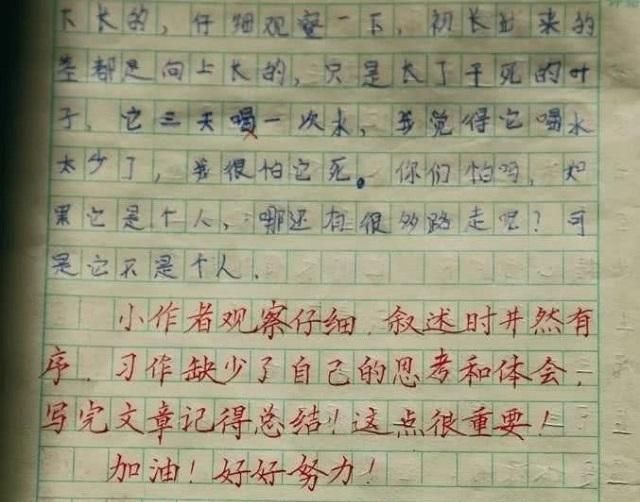 下长的，仔细观察一下，初长出来的
茎都是向上长的，只是长了干死的叶
子，它三天喝一次水，我觉得它喝水
太少了，我很怕它死。你们怕吗，如
果它是个人，哪还有很多路走呢？可
是它不是个人.
小作者观察仔细，叙述时井然有
序，习作缺少了自己的思考和体会，
写完文章记得总结！这点很重要！
加油！好好努力！